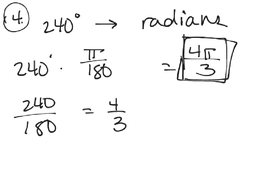 4. 240° → radians
240° · π/180 = 4π/3
240/180 = 4/3